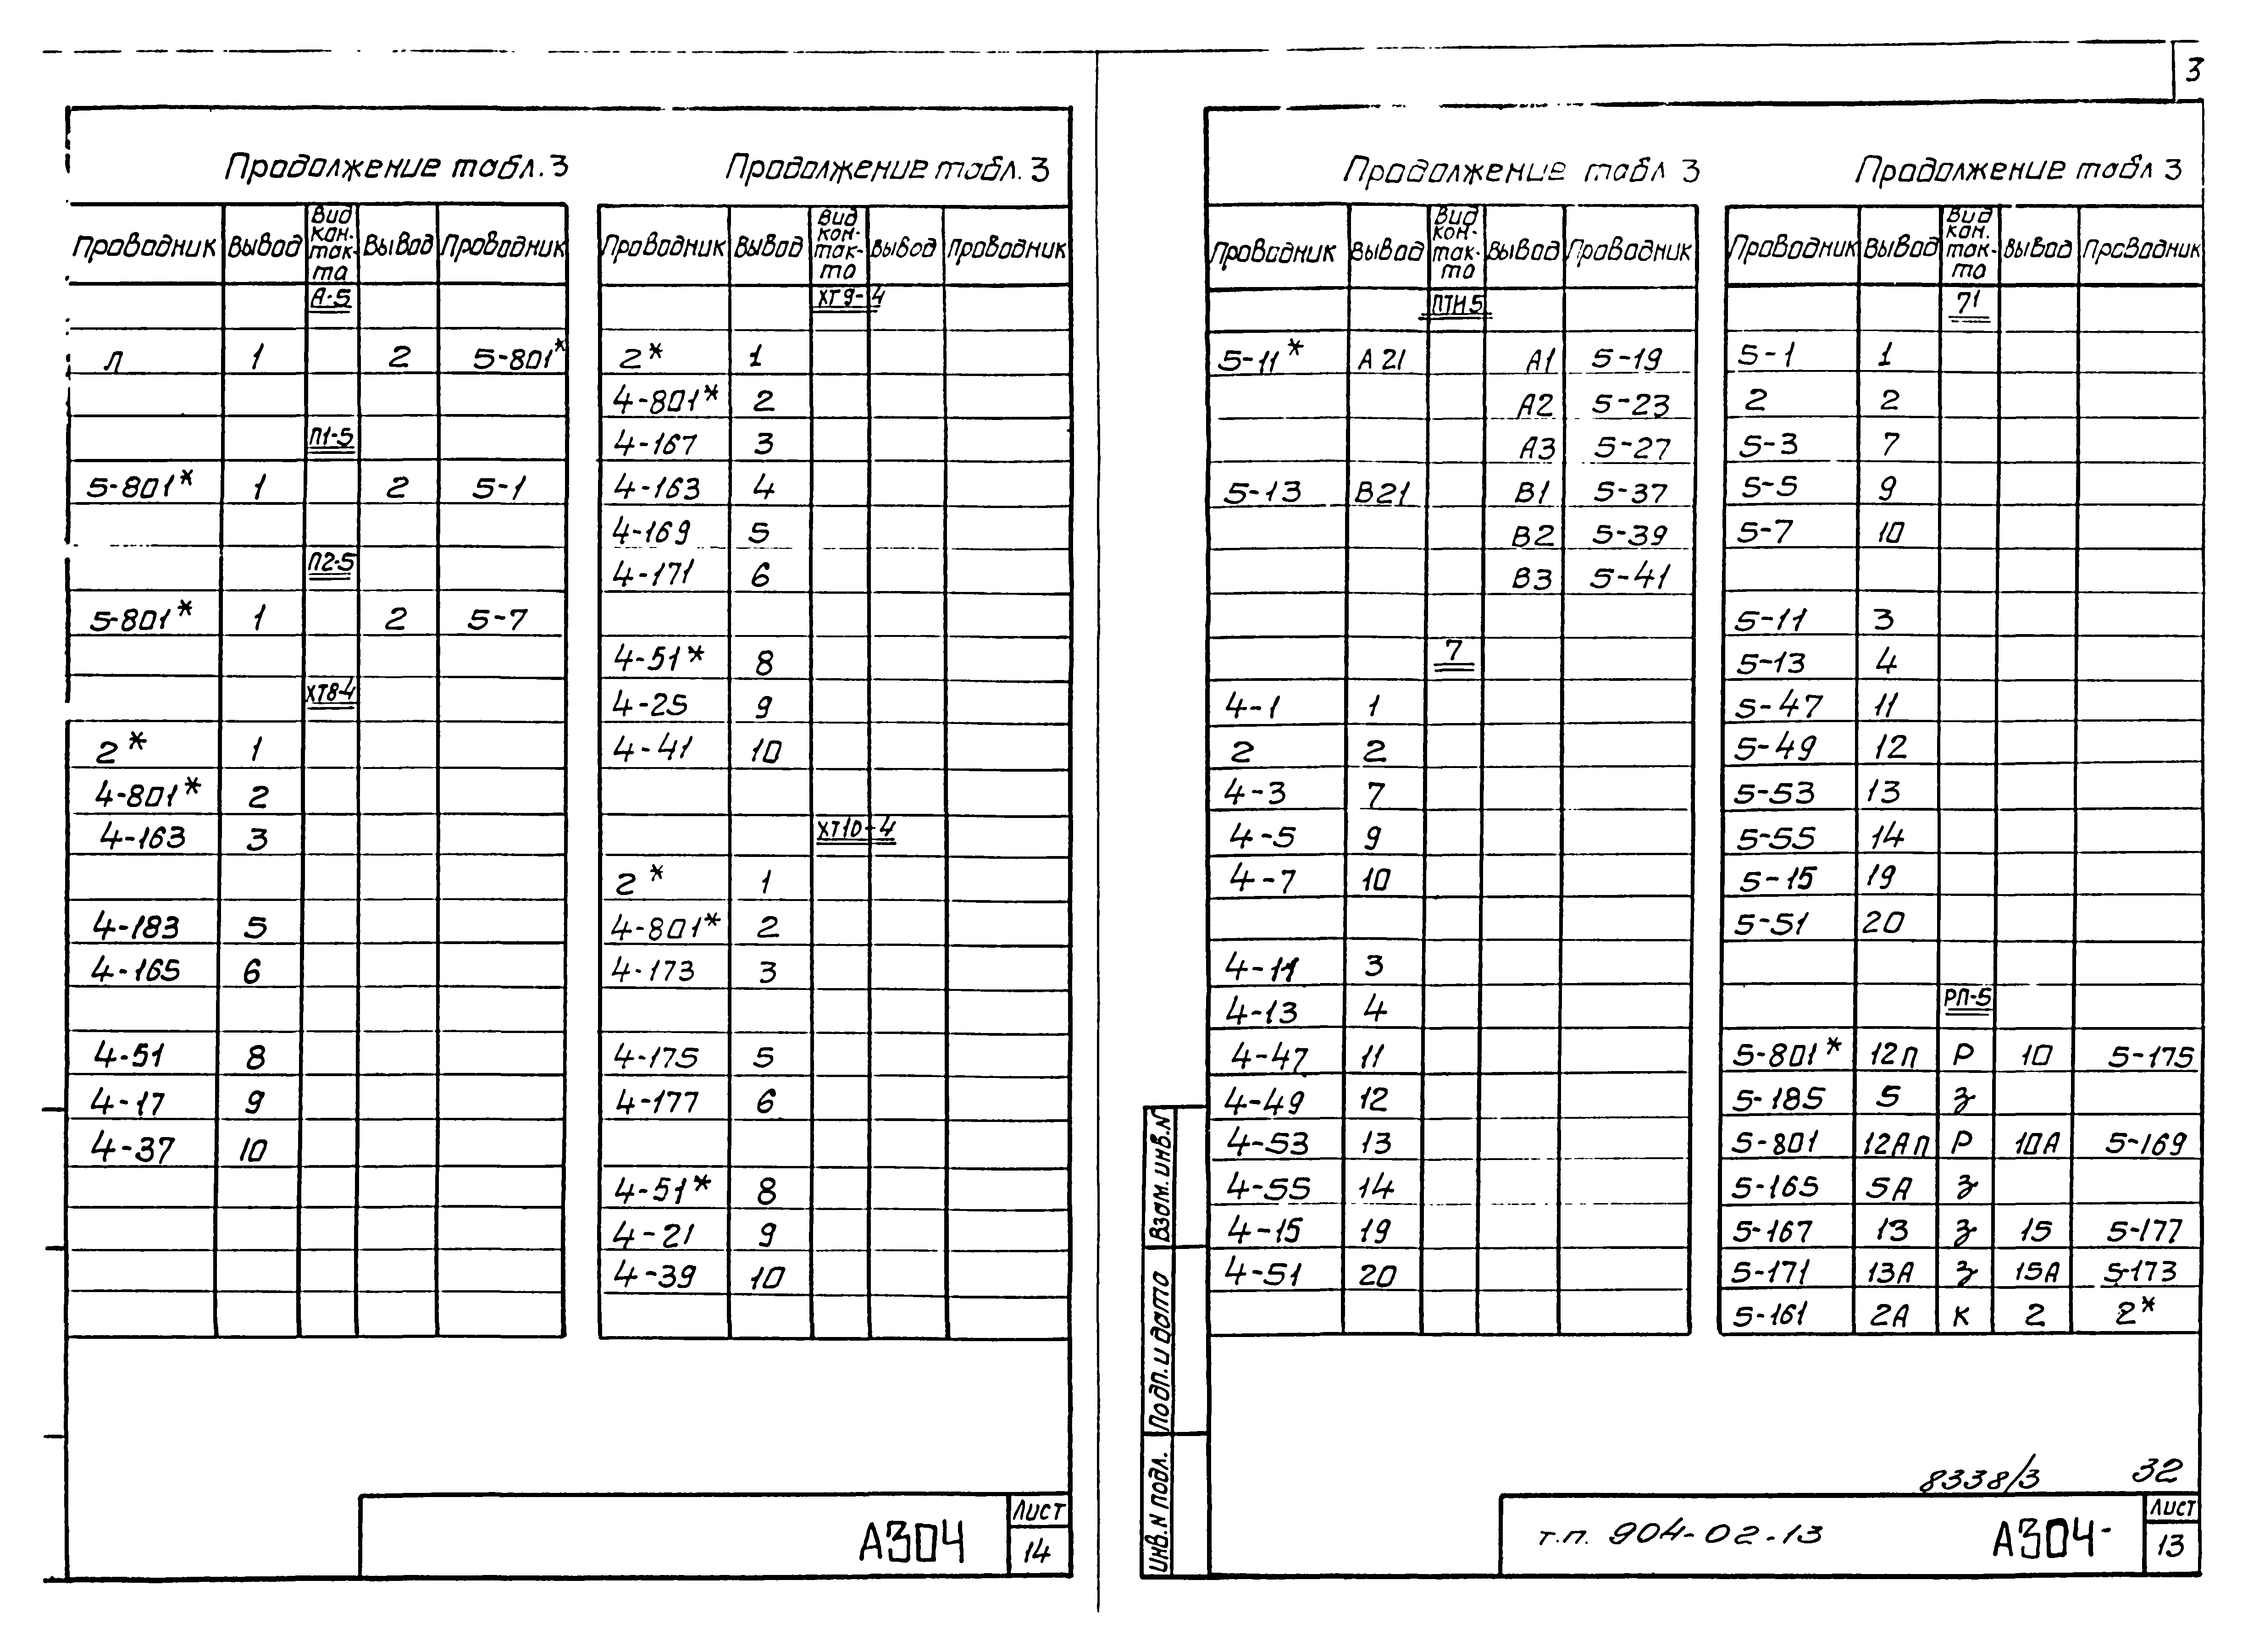 3
Продолжение табл.3
Проводник Вывод Вид кон-так-та Вывод Проводник
А-5
Л 1 2 5-801*
П1-5
5-801* 1 2 5-1
П2-5
5-801* 1 2 5-7
ХТ8-4
2* 1
4-801* 2
4-163 3
4-183 5
4-165 6
4-51 8
4-17 9
4-37 10
Продолжение табл. 3
Проводник Вывод Вид кон-так-та Вывод Проводник
ХТ9-4
2* 1
4-801* 2
4-167 3
4-163 4
4-169 5
4-171 6
4-51* 8
4-25 9
4-41 10
ХТ10-4
2* 1
4-801* 2
4-173 3
4-175 5
4-177 6
4-51* 8
4-21 9
4-39 10
А304
Лист
14
Продолжение табл 3
Проводник Вывод Вид кон-так-та Вывод Проводник
ПТИ5
5-11* А21 А1 5-19
А2 5-23
А3 5-27
5-13 В21 В1 5-37
В2 5-39
В3 5-41
7
4-1 1
2 2
4-3 7
4-5 9
4-7 10
4-11 3
4-13 4
4-47 11
4-49 12
4-53 13
4-55 14
4-15 19
4-51 20
Продолжение табл 3
Проводник Вывод Вид кон.так-та Вывод Проводник
7'
5-1 1
2 2
5-3 7
5-5 9
5-7 10
5-11 3
5-13 4
5-47 11
5-49 12
5-53 13
5-55 14
5-15 19
5-51 20
РП-5
5-801* 12П Р 10 5-175
5-185 5 З
5-801 12АП Р 10А 5-169
5-165 5А З
5-167 13 З 15 5-177
5-171 13А З 15А 5-173
5-161 2А К 2 2*
Взам. инв.N
Подп. и дата
Инв. N подл.
8338/3 32
т.п. 904-02-13 А304-
Лист
13